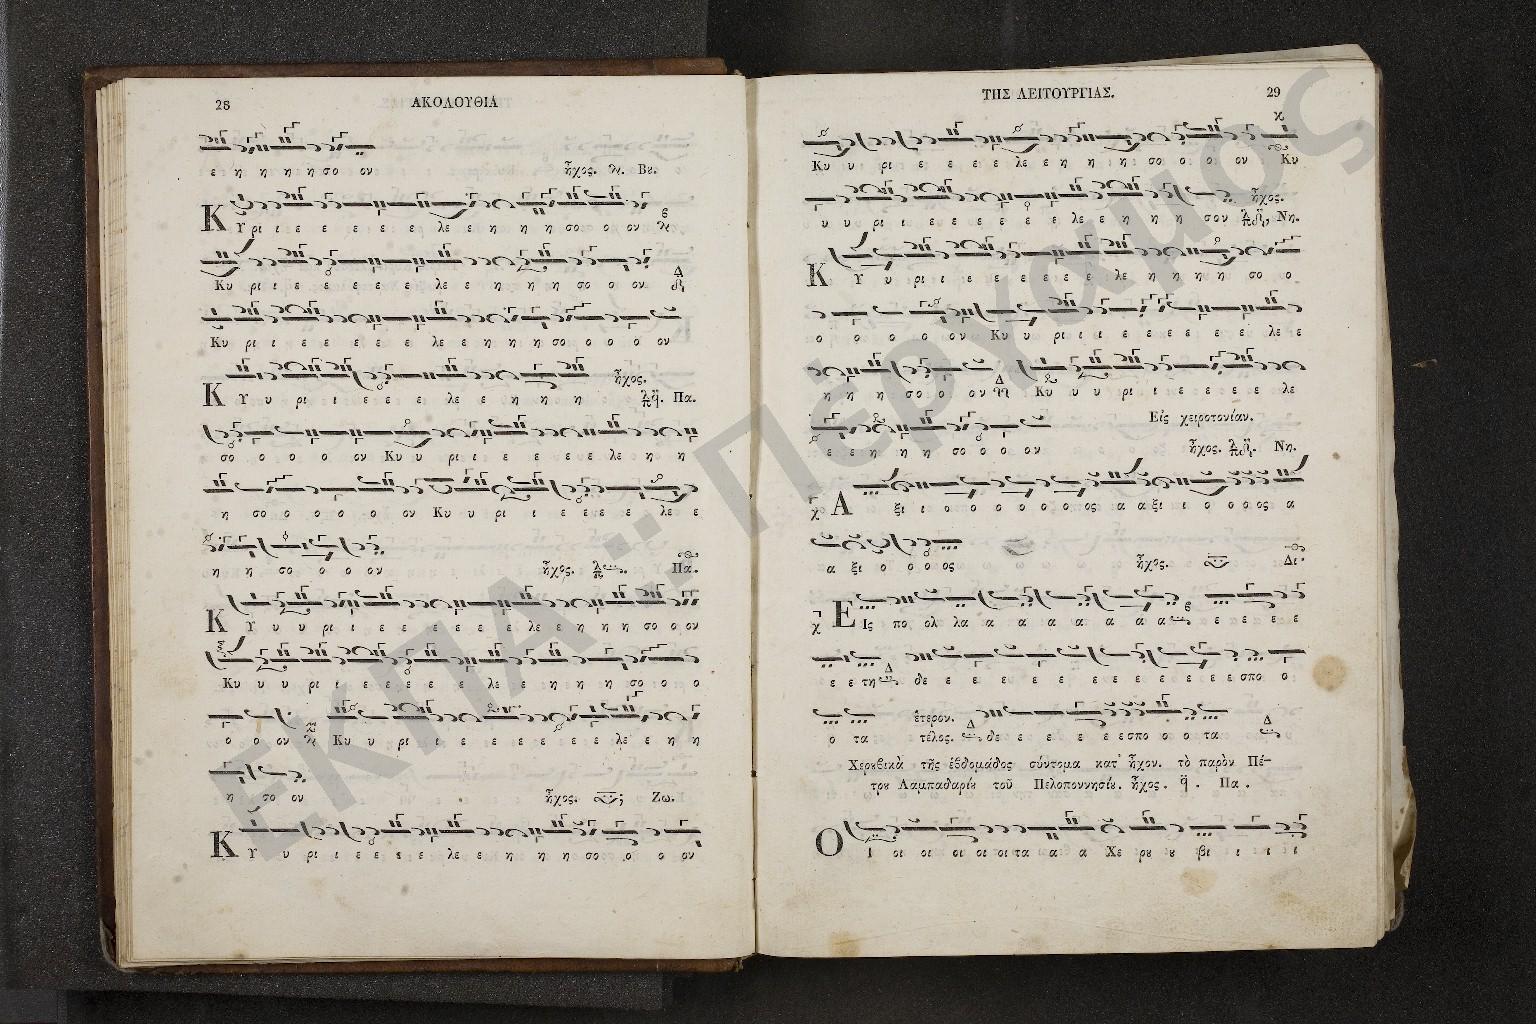 28 ΑΚΟΛΟΥΘΙΑ
ε η η η η σο ον ἦχος. Βȣ.
Κ Υ ρι ι ε ε ε ε ε λε ε η η η η σο ο ο ον
Κυ ρι ι ε ε ε ε ε ε λε ε η η η η σο ο ο ον Δ
Κυ ρι ι ε ε ε ε ε λε ε η η η η σο ο ο ο ον
Κ Υ υ ρι ι ε ε ε ε λε ε η η η η ἦχος. Πα.
σο ο ο ο ο ον Κυ υ ρι ι ε ε ε ε ε λε η η
η σο ο ο ο ο ο ον Κυ υ ρι ι ε ε ε ε ε λε ε
η η σο ο ο ον ἦχος. Πα.
Κ Υ υ υ ρι ι ε ε ε ε ε ε λε ε η η η σο ο ον
Κυ υ υ ρι ι ε ε ε ε ε λε ε ε η η η η σο ο ο
ο ο ον Κυ υ ρι ι ε ε ε ε ε ε ε ε λε ε η η
η σο ον ἦχος. Ζω.
Κ Υ υ ρι ι ε ε ε ε λε ε η η η η σο ο ο ον
ΤΗΣ ΛΕΙΤΟΥΡΓΙΑΣ. 29
Κυ υ ρι ε ε ε ε λε ε η η η η σο ο ο ον Κυ
υ υ ρι ι ε ε ε ε ε ε λε ε η η η η σον ἦχος. Νη.
Κ Υ υ ρι ι ε ε ε ε ε ε λε η η η η σο ο
ο ο ο ο ο ον Κυ υ ρι ι ι ε ε ε ε ε ε λε ε
η η η σο ο ον Δ Κυ υ υ ρι ι ε ε ε ε ε λε
Εἰς χειροτονίαν.
ε ε η η η σο ο ο ον ἦχος. Νη.
Α ξι ι ο ο ο ο ο ο ο ος α α ξι ι ο ο ο ος α
α ξι ο ο ο ος ἦχος. Δι.
Ε Ις πο ολ λα α α α α α α α ε ε ε ε
ε ε τη Δ δε ε ε ε ε ε ε ε ε ε ε ε ε σπο ο
ο τα ἕτερον. τέλος. Δ δε ε ε ε ε ε σπο ο ο τα Δ
Χερȣβικὰ τῆς ἑβδομάδος σύντομα κατ' ἦχον. τὸ παρὸν Πέ-
τρȣ Λαμπαδαρίȣ τοῦ Πελοποννησίȣ. ἦχος. Πα.
Ο Ι οι οι οι οι οι τα α α Χε ρȣ ȣ βι ι ι ι
ΕΚΠΑ :: Πέργαμος